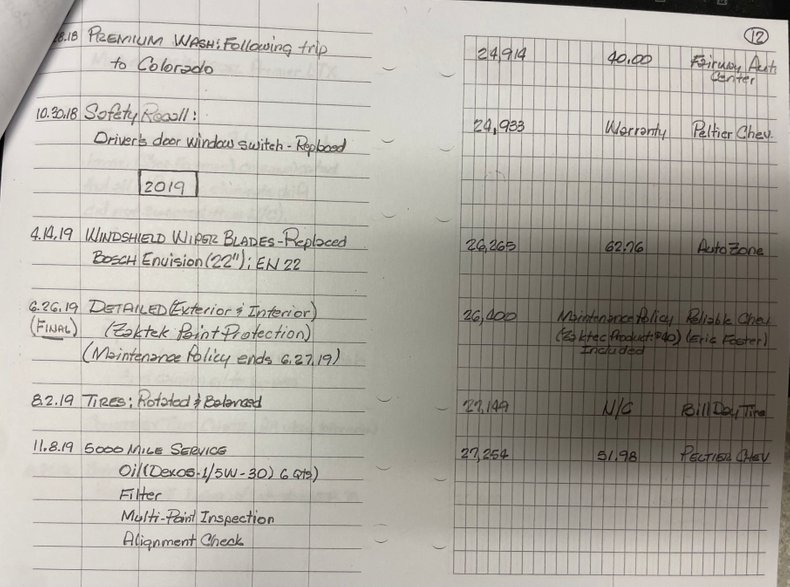 12
8.18 PREMIUM WASH: Following trip 24,914 40.00 Fairway Auto
to Colorado Center
10.30.18 Safety Recall: 24,933 Warranty Peltier Chev.
Driver's door window switch - Replaced
2019
4.14.19 WINDSHIELD WIPER BLADES - Replaced 26,265 62.76 AutoZone
BOSCH Envision (22"); EN 22
6.26.19 DETAILED (Exterior & Interior) 26,400 Maintenance Policy Reliable Chev
(FINAL) (Zaktek Paint Protection) (Zaktec Product: $40) (Eric Foster)
(Maintenance Policy ends 6.27.19) Included
8.2.19 TIRES: Rotated & Balanced 27,149 N/C Bill Day Tire
11.8.19 5000 MILE SERVICE 27,254 51.98 PELTIER CHEV
Oil (Dexos-1/5W-30) 6 Qts)
Filter
Multi-Point Inspection
Alignment Check